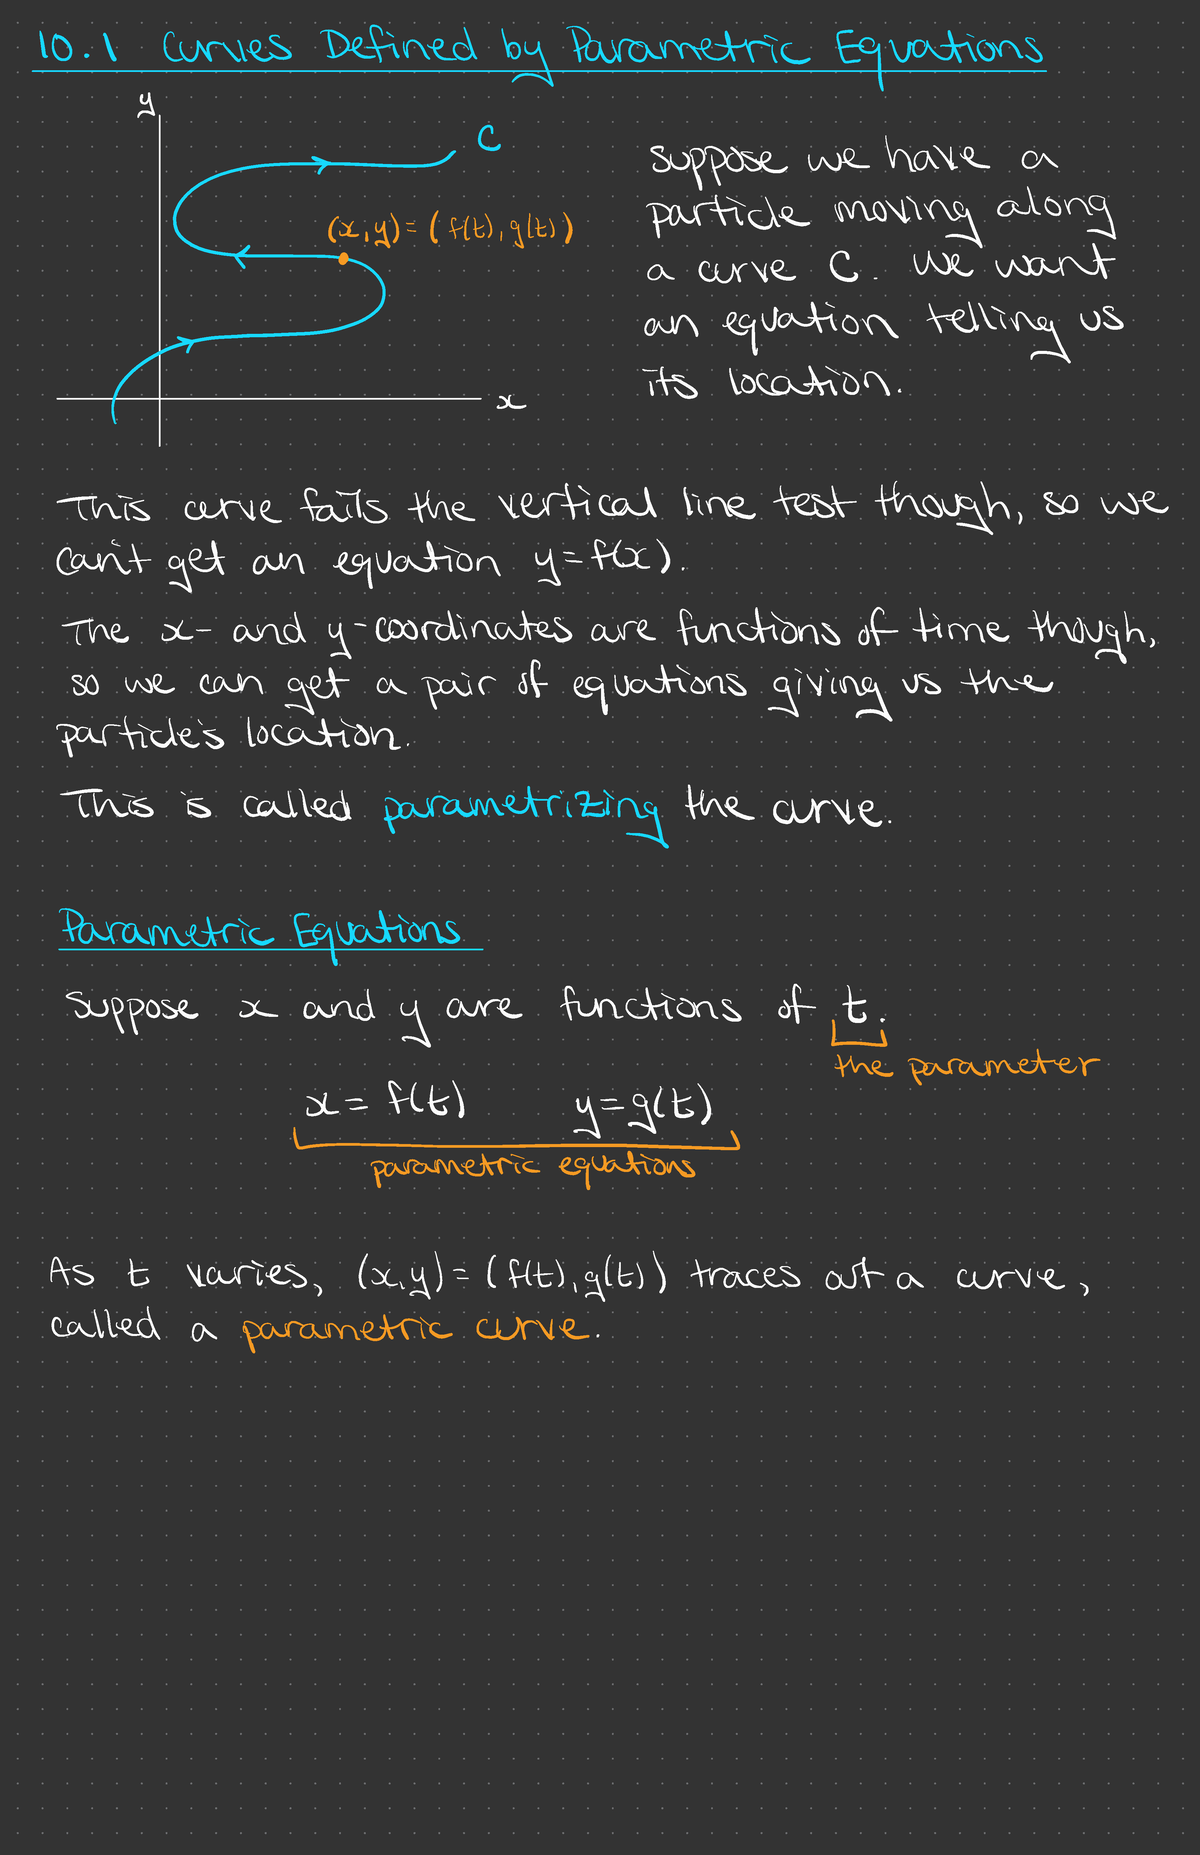 10.1 Curves Defined by Parametric Equations
y
C
(x,y) = (f(t), g(t))
x
suppose we have a
particle moving along
a curve C. We want
an equation telling us
its location.
This curve fails the vertical line test though, so we
can't get an equation y=f(x).
The x- and y-coordinates are functions of time though,
so we can get a pair of equations giving us the
particle's location.
This is called parametrizing the curve.
Parametric Equations
Suppose x and y are functions of t.
the parameter
x = f(t) y=g(t)
parametric equations
As t varies, (x,y) = (f(t), g(t)) traces out a curve,
called a parametric curve.